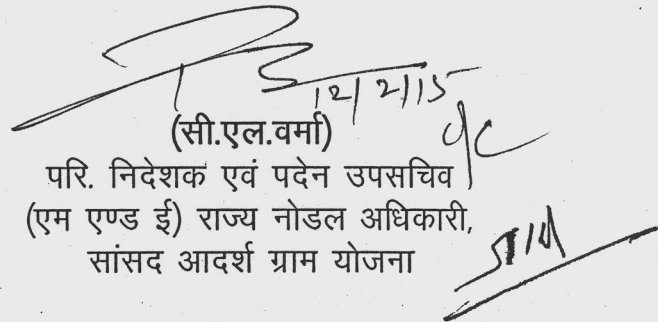 12/2/15
(सी.एल.वर्मा)
परि. निदेशक एवं पदेन उपसचिव
(एम एण्ड ई) राज्य नोडल अधिकारी,
सांसद आदर्श ग्राम योजना